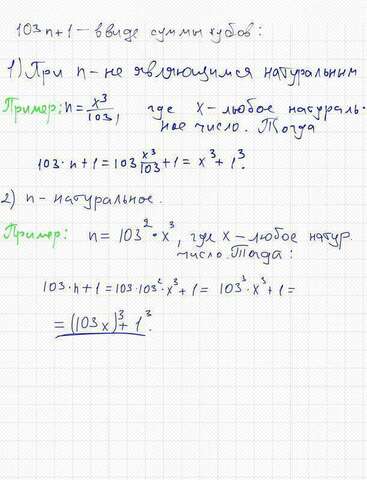 103n+1 – ввиде суммы кубов:
1) При n – не являющимся натуральным
Пример: n = x³/103, где x – любое натураль-
ное число. Тогда
103·n+1 = 103 x³/103 + 1 = x³ + 1³.
2) n – натуральное.
Пример: n = 103²·x³, где x – любое натур.
число. Тогда:
103·n+1 = 103·103²·x³+1 = 103³·x³+1 =
= (103x)³ + 1³.